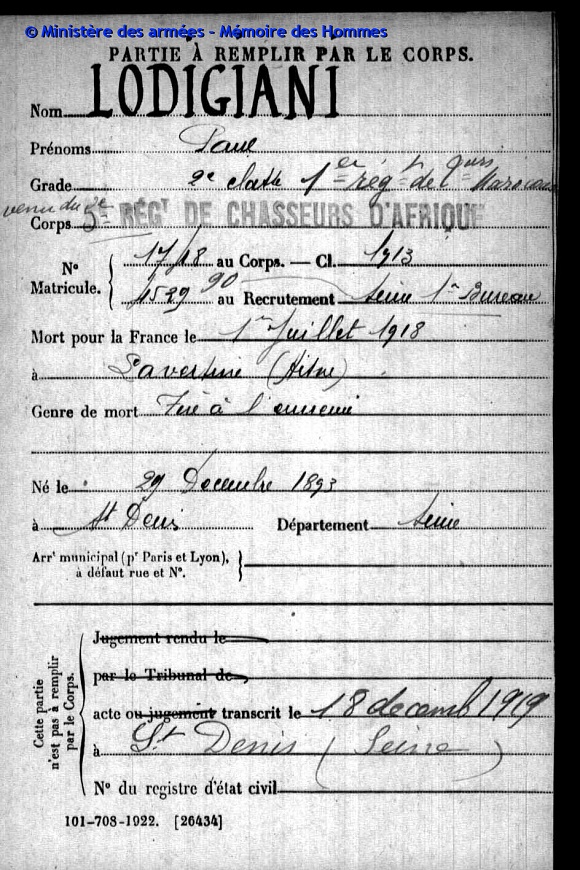 © Ministère des armées - Mémoire des Hommes
PARTIE À REMPLIR PAR LE CORPS.
Nom LODIGIANI
Prénoms Paul
Grade 2e classe 1er rég
venu du 5e RÉGT DE CHASSEURS D'AFRIQUE
Corps
N° Matricule. { 17/18 au Corps. — Cl. 1913
4529 90 au Recrutement Seine 1er Bureau
Mort pour la France le 1er Juillet 1918
à (Aisne)
Genre de mort Tué à l'ennemi
Né le 29 Décembre 1893
à St Denis Département Seine
Arrt municipal (pr Paris et Lyon), à défaut rue et N°. }
Cette partie n'est pas à remplir par le Corps. {
Jugement rendu le
par le Tribunal de
acte ou jugement transcrit le 18 decemb 1919
à St Denis (Seine)
N° du registre d'état civil
101-708-1922. [26434]